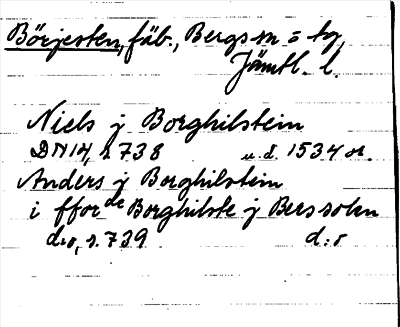 Börjesten, fäb., Bergs sn o tg,
Jämtl. l.
Niels j Borghilstein
DN 14, s. 738 u. d. 1534 or.
Anders j Borghilstein
i ffor de Borghilste j Bers sokn
d:o, s. 739 d:o